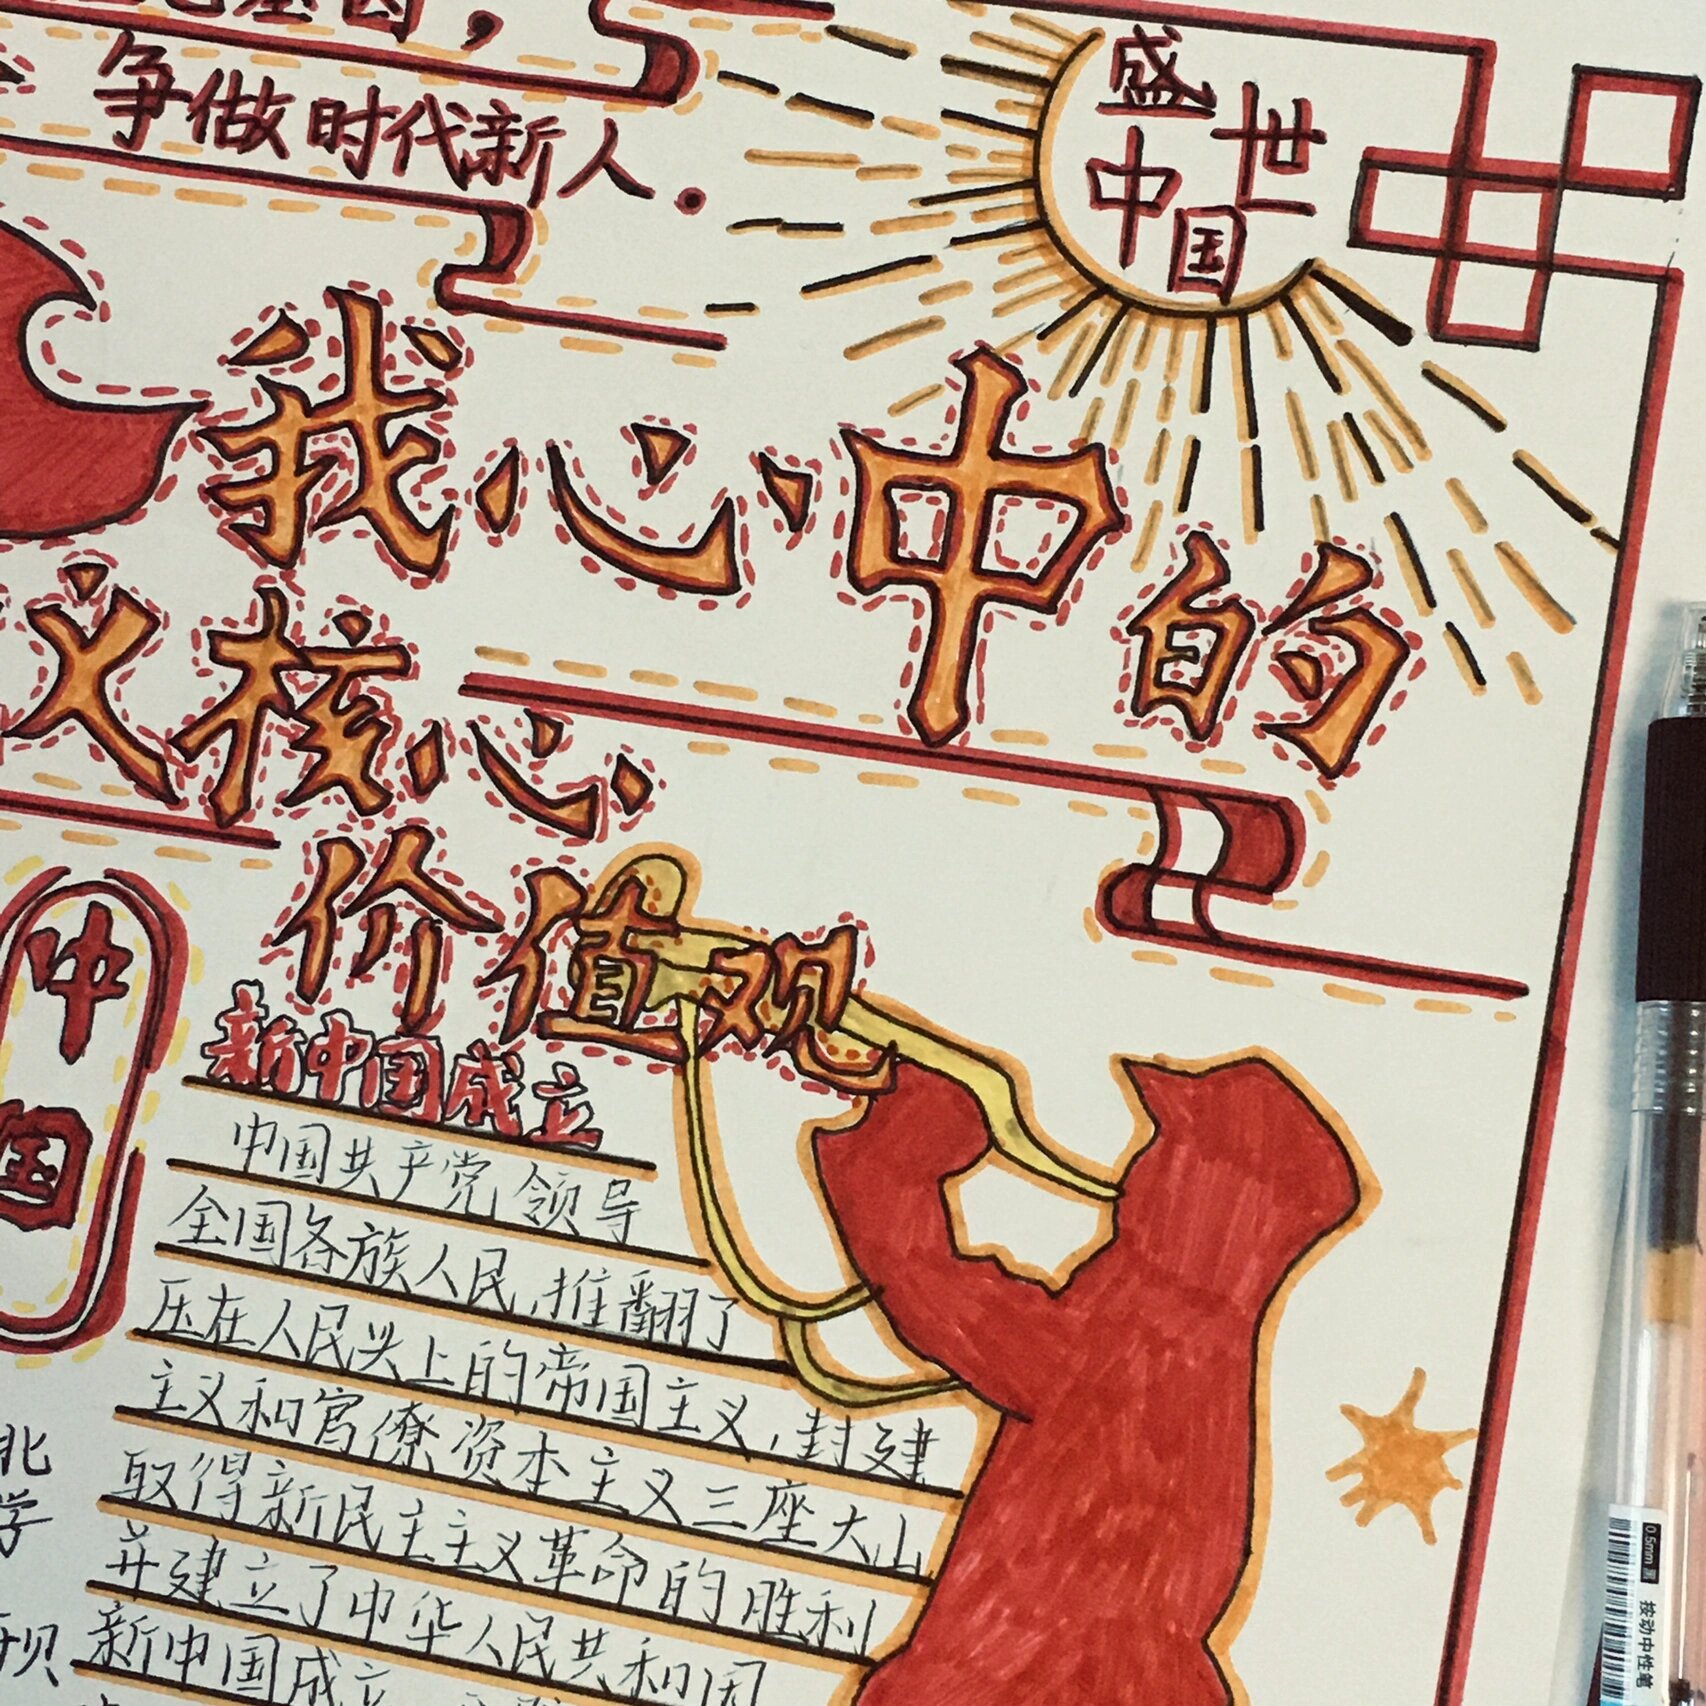 基因，
争做时代新人.
盛世
中国
我心中的
义核心
价值观
中国
新中国成立
中国共产党领导
全国各族人民,推翻了
压在人民头上的帝国主义,封建
主义和官僚资本主义三座大山
取得新民主主义革命的胜利
并建立了中华人民共和国
新中国成立
北
学
0.5mm 黑
按动中性笔